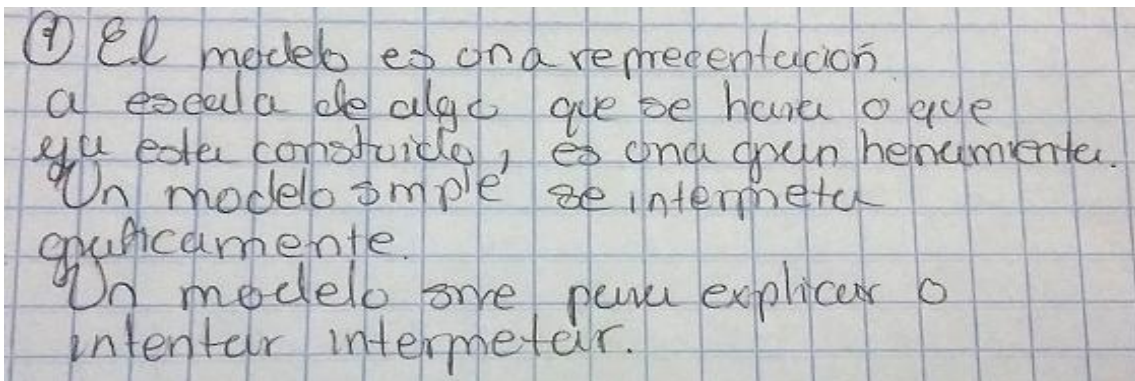 ① El modelo es una representación
a escala de algo que se hara o que
ya esta construido, es una gran herramienta.
Un modelo simple se interpreta
graficamente.
Un modelo sirve para explicar o
intentar interpretar.